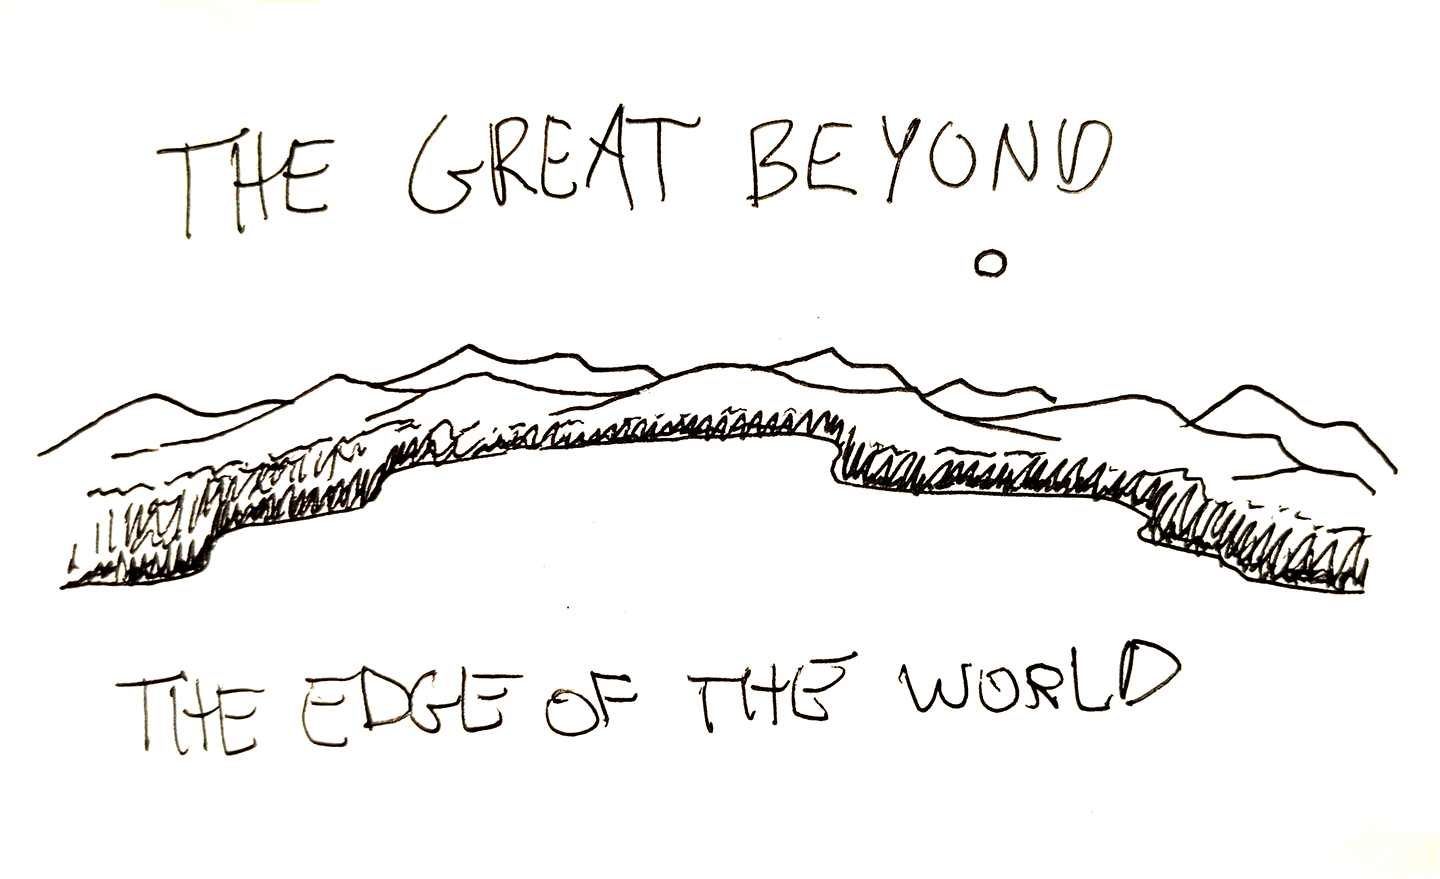 THE GREAT BEYOND
THE EDGE OF THE WORLD